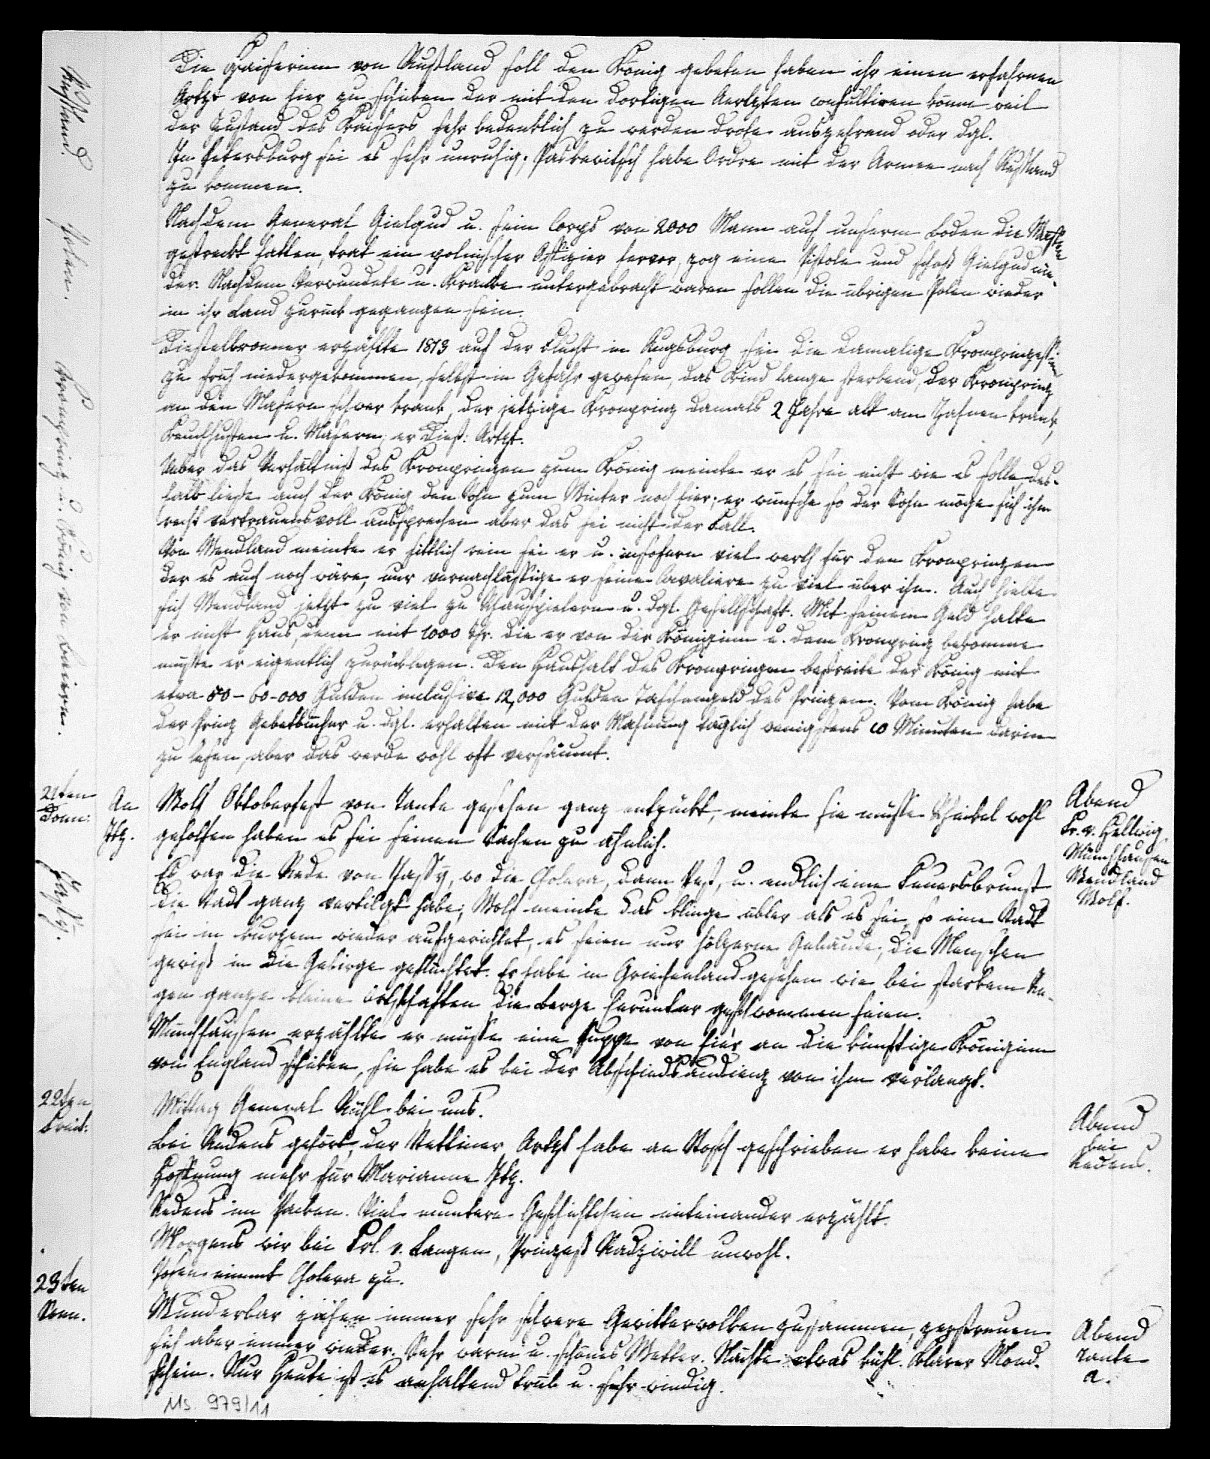 Die Kaiserinn von Rußland soll den König gebeten haben ihr einen erfahrnen
Artzt von hier zu schicken der mit den dortigen Aertzten consultiren könne weil
der Zustand des Kaisers sehr bedenklich zu werden drohe auszehrend oder dgl.
In Petersburg sei es sehr unruhig. Paskewitsch habe Ordre mit der Armee nach Rußland
zu kommen.
Nachdem General Gielgud u. sein Corps von 2000 Mann auf unserm Boden die Waffen
gestreckt hatten, trat ein polnischer Offizier hervor, zog eine Pistole und schoß Gielgud nie-
der. Nachdem Verwundete u. Kranke untergebracht waren sollen die übrigen Polen wieder
in ihr Land zurück gegangen sein.
erzählte 1813 auf der Flucht in Augsburg sei die damalige Kronprinzessin
zu früh niedergekommen, selbst in Gefahr gewesen, das Kind lange sterbend, der Kronprinz
an den Masern schwer krank, der jetzige Kronprinz damals 2 Jahre alt am Zahnen krank,
Keuchhusten u. Masern, er Artzt.
Ueber das Verhältniß des Kronprinzen zum König meinte er es sei nicht wie es solle, des-
halb ließe auch der König den Sohn zum Winter noch hier; er wünsche so der Sohn möge sich ihm
recht vertrauensvoll aussprechen aber das sei nicht der Fall.
Von Wendland meinte er sittlich rein sei er u. insofern viel werth für den Kronprinzen
der es auch noch wäre, nur vernachlässige er seine Cavaliere zu viel über ihn. Auch hielte
sich Wendland jetzt zu viel zu Schauspielern u. dgl. Gesellschaft. Mit seinem Geld halte
er nicht Haus, denn mit 1000 die er von der Königinn u. dem Kronprinz bekomme
müßte er eigentlich zurücklegen. Den Haushalt des Kronprinzen bestreite der König mit
etwa 50-60-000 Gulden inclusive 12,000 Gulden Taschengeld des Prinzen. Vom König habe
der Prinz Gebetbücher u. dgl. erhalten mit der Mahnung täglich wenigstens 10 Minuten darin
zu lesen, aber das werde wohl oft versäumt.
Wolf Oktoberfest von Tante gesehen ganz entzückt, meinte sie müsse Schinkel wohl
geholfen haben es sei seinen Sachen zu ähnlich.
Es war die Rede von Yassy, wo die Cholera, dann Pest, u. endlich eine Feuersbrunst
die Stadt ganz vertilgt habe; Wolf meinte das klinge übler als es sei, so eine Stadt
sei in kurzem wieder aufgerichtet, es seien nur hölzerne Gebäude, die Menschen
gewiß in die Gebirge geflüchtet. Er habe in Griechenland gesehen wie bei starkem Re-
gen ganze kleine Ortschaften die Berge herunter geschwommen seien.
Münchhausen erzählte er müsse eine Puppe von hier an die künftige Königinn
von England schicken, sie habe es bei der Abschiedsaudienz von ihm verlangt.
Mittag General Rühl bei uns.
Bei Redens gehört, der Stettiner Artzt habe an Stosch geschrieben er habe keine
Hoffnung mehr für Marianne Itz.
Redens im Packen. Viel muntere Geschichtchen miteinander erzählt.
Morgens wir bei Frl. v. Langen, Prinzeß Radziwill unwohl.
Posen nimmt Cholera zu.
Wunderbar ziehen immer sehr schwere Gewitterwolken zusammen, zerstreuen
sich aber immer wieder. Sehr warm u. schönes Wetter. Nächte etwas kühl. Klarer Mond-
schein. Nur heute ist es anhaltend trüb u. sehr windig.
Rußland.
Polen.
Kronprinz u. König von Baiern.
21ten
Donn:
An
Itz.
22ten
Freit:
23ten
Sonn.
Abend
Fr. v. Hellwig
Münchhausen
Wendland
Wolf.
Abend
bei
Redens.
Abend
Tante
a.
Ms. 979/11